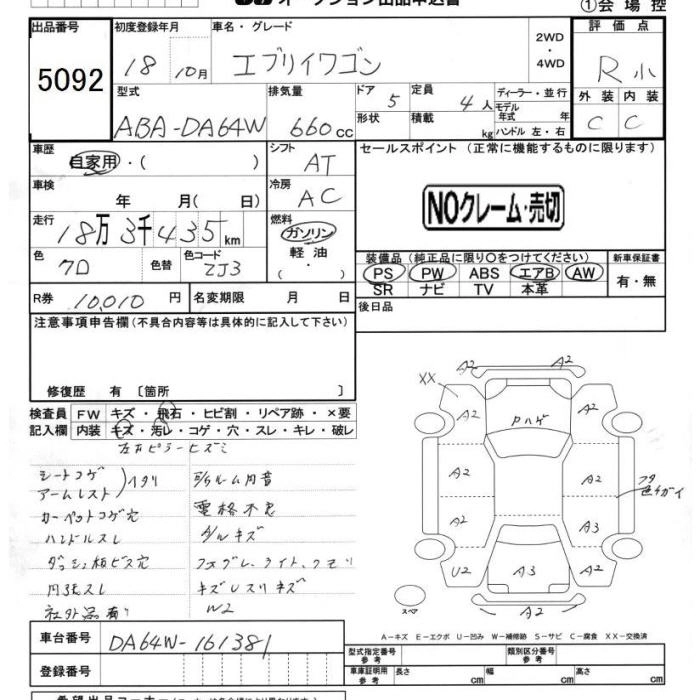 ①会 場 控
出品番号 初度登録年月 車名・グレード 評 価 点
5092
18 10月 エブリイワゴン 2WD ・ 4WD R 小
型式 排気量 ドア 5 定員 4人 ディーラー・並行 外 装 内 装
ABA-DA64W 660cc 形状 積載 kg モデル年式 年 C C
ハンドル 左・右
車歴 自家用・( ) シフト AT セールスポイント (正常に機能するものに限ります)
車検 年 月( 日) 冷房 AC
NOクレーム・売切
走行 18万3千435km 燃料 ガソリン 軽 油
色 クロ 色替 色コード ZJ3
装備品 (純正品に限り〇をつけてください) 新車保証書
PS PW ABS エアB AW 有・無
SR ナビ TV 本革
R券 10,010 円 名変期限 月 日 後日品
注意事項申告欄(不具合内容等は具体的に記入して下さい)
修復歴 有 〔箇所 〕
検査員 FW キズ・飛石・ヒビ割・リペア跡・×要
記入欄 内装 キズ・汚レ・コゲ・穴・スレ・キレ・破レ
左右ピラーヒズミ
シートコゲ
アームレスト イタミ
カーペットコゲ穴 電格不良
ハンドルスレ
ダッシュ板ビス穴
内張スレ
社外品有り W2
XX A2 A2
A2 A2
ロハゲ
A2 A2
フタ色チガイ
A2 A3
U2 A3 A2
スペア A2
A－キズ E－エクボ U－凹み W－補修跡 S－サビ C－腐食 XX－交換済
車台番号 DA64W-161381 型式指定番号 参 考 類別区分番号 参 考
登録番号 車庫証明用 参 考 長さ cm 幅 cm 高さ cm